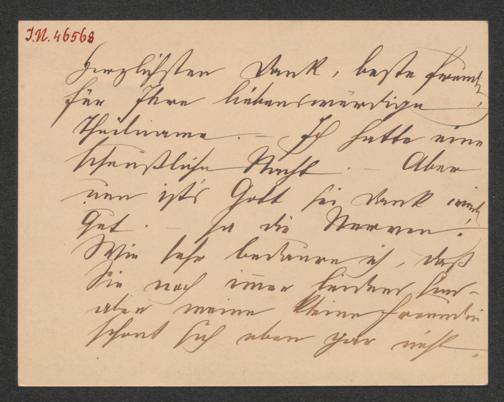 I.N. 46568
Herzlichsten Dank, beste Freundin,
für Ihre liebenswürdige
Theilname. – Ich hatte eine
scheußliche Nacht. – Aber
nun ist's Gott sei Dank wieder
gut. – Ja die Nerven!
Wie sehr bedaure ich, daß
Sie noch immer leidend sind –
aber meine kleine Freundin
schont sich eben gar nicht.